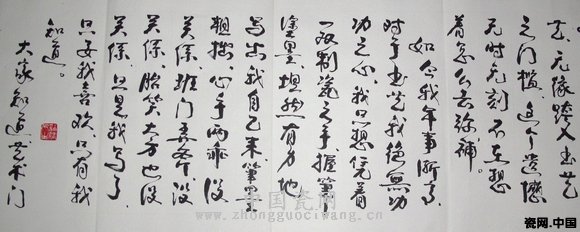 去，无缘跨入书艺
之门槛，这个遗憾
无时无刻不在想
着怎么去弥补。
如今我年事渐高
对于书艺我绝无功
功之心，我只想凭着
一双制瓷之手，握笔
涂墨，坦然有力地
写出我自己来，笔墨
粗拙，心手两乖没
关系，班门弄斧没
关系，贻笑大方也没
关系，只是我写了，
只要我喜欢，只有我
知道。
大家知道艺术门
中国瓷网
www.zhongguociwang.cn
瓷网.中国